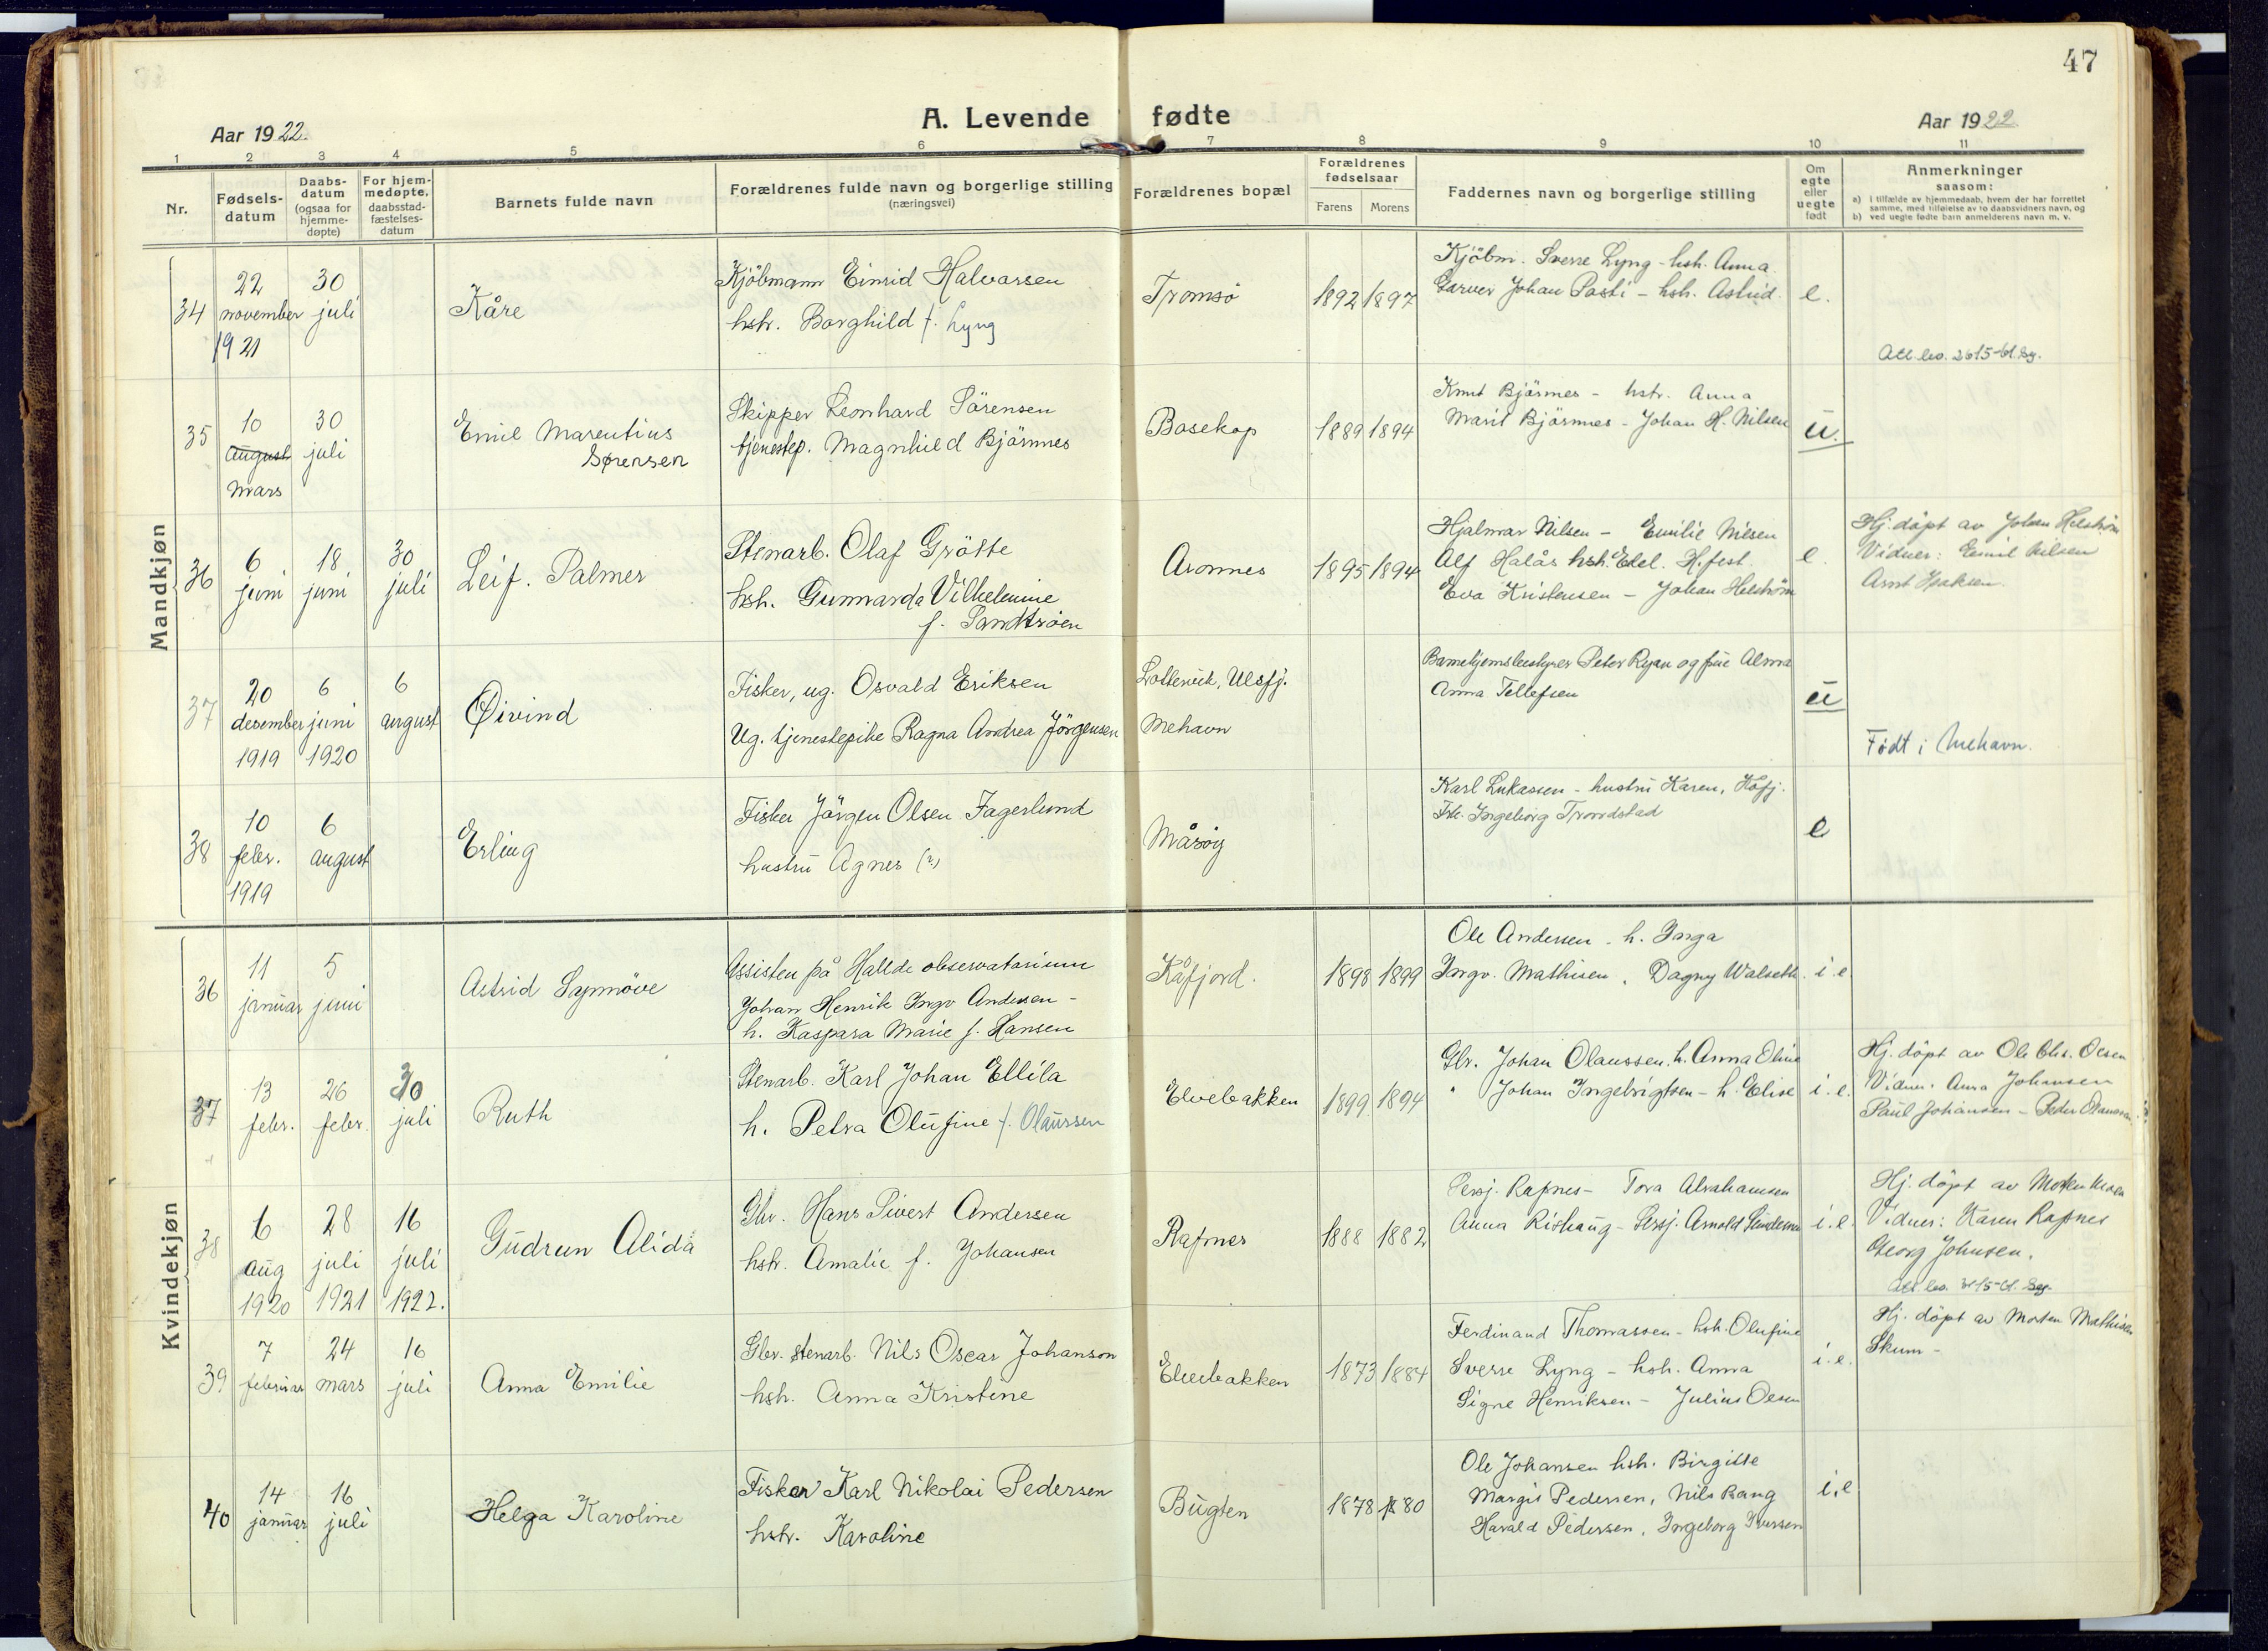 47
A. Levende fødte
Aar 1922.
Aar 1922
1 2 3 4 5 6 7 8 9 10 11
Nr.
Fødsels-
datum
Daabs-
datum
(ogsaa for
hjemme-
døpte)
For hjem-
medøpte,
daabsstad-
fæstelses-
datum
Barnets fulde navn
Forældrenes fulde navn og borgerlige stilling
(næringsvei)
Forældrenes bopæl
Forældrenes
fødselsaar
Farens Morens
Faddernes navn og borgerlige stilling
Om
egte
eller
uegte
født
Anmerkninger
saasom:
a) i tilfælde av hjemmedaab, hvem der har forrettet
samme, med tilføielse av to daabsvidners navn, og
b) ved uegte fødte barn anmelderens navn m. v.
Mandkjøn
34
22
november
1921
30
juli
Kåre
Kjöbmann Halvarsen
hstr. Borghild f. Lyng
Tromsö
1892 1897
Kjöbm. Sverre Lyng - hsh. Anna
Garver Johan Posti - hsh. Astrid
e.
Att. lev.
35
10
august
mars
30
juli
Emil Marentius
Sørensen
Skipper Leonhard Sörensen
tjenestep. Magnhild Björnnes
Bosekop
1889 1894
Knut Björnnes - hstr. Anna
Marit Björnnes - Johan H. Nilsen
u.
36
6
juni
18
juni
30
juli
Leif. Palmer
Stenarb. Olaf Grötte
hsh. Gunnarda Vilhelmine
f. Sandtröen
Aronnes
1895 1894
Hjalmar Nilsen - Emilie Nilsen
Alf Halås hsh. Edel. H.fest.
Eva Kristensen - Johan Helström
e.
Hj. döpt av Johan Helström
Vidner: Emil Nilsen
Arnt Isaksen.
37
20
desember
1919
6
juni
1920
6
august
Øivind
Fisker, ug. Osvald Eriksen
Ug. tjenestepike Ragna Andrea Jörgensen
Ulsfj.
Mehavn
Barnehjemsbestyrer Peter Ryan og frue Alma
Anna Tellefsen
u
Født i Mehavn.
38
10
febr.
1919
6
august
Erling
Fisker Jörgen Olsen Fagerlund
hustru Agnes (?)
Måsöy
Karl Lukassen - hustru Karen, Kåfj.
Frk. Ingeborg Trondstad
e
Kvindekjøn
36
11
januar
5
juni
Astrid Synnöve
Assisten på Hallde observatorium
Johan Henrik Ingv Andersen -
h. Kaspara Marie f. Hansen
Kåfjord.
1898 1899
Ole Andersen - h. Inga
Ingv. Mathisen. Dagny Walseth.
i e
37
13
febr.
26
febr.
30
juli
Ruth
Stenarb. Karl Johan Ellila
h. Petra Olufine f. Olaussen
Elvebakken
1899 1894
Gbr. Johan Olaussen. h. Anna Oline
" Johan Ingebrigtsen - h. Elise
i. e.
Hj. döpt av Ole Chr. Olsen
Vidner. Anna Johansen
Paul Johansen - Peder Olaussen
38
6
aug
1920
28
juli
1921
16
juli
1922.
Gudrun Alida
Gbr. Hans Sivert Andersen
hstr. Amalie f. Johansen
Rafnes
1888 1882
Sersj. Rafnes - Tora Abrahamsen
Anna Rishaug - Sersj. Arnold
i. e.
Hj. döpt av
Vidner: Karen Rafnes
Georg Johnsen.
Att. lev.
39
7
februar
24
mars
16
juli
Anna Emilie
Gbr. stenarb. Nils Oscar Johanson
hsh. Anna Kristine
Elvebakken
1873 1884
Ferdinand Thomassen - hsh. Olufine
Sverre Lyng - hsh. Anna
Signe Henriksen - Julius Olsen
i. e.
Hj. döpt av Morten Mathisen
Skum -
40
14
januar
16
juli
Helga Karoline
Fisker Karl Nikolai Pedersen
hstr. Karoline
Bugten
1878 1880
Ole Johansen hsh. Birgitte
Margit Pedersen, Nils Bang
Harald Pedersen, Ingeborg Iversen
i. e